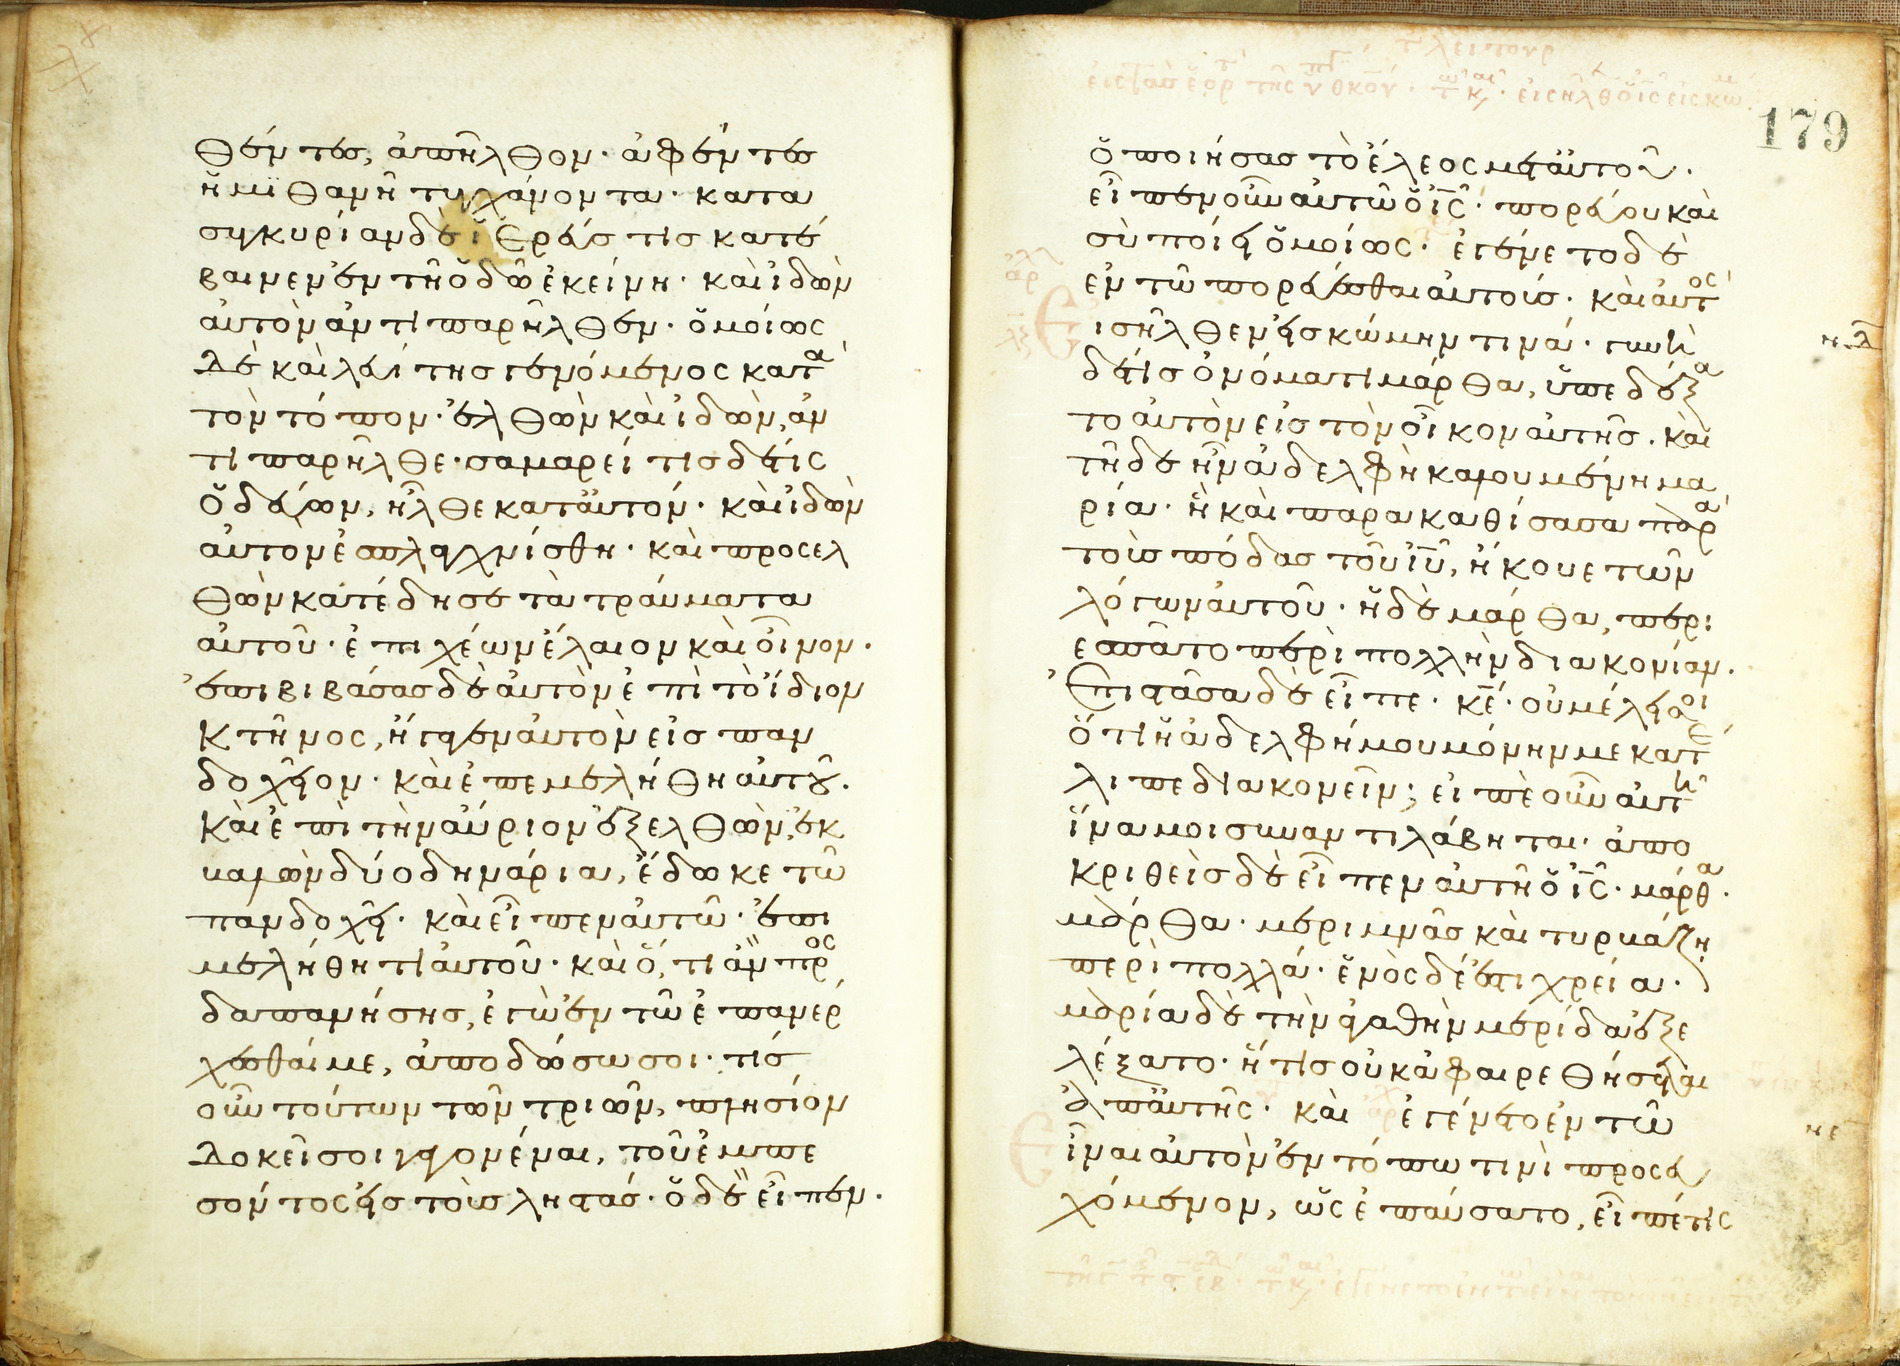 θέντες, ἀπῆλθον· ἀφέντες
ἡμιθανῆ τυγχάνοντα· κατα
συγκυρίαν δὲ ἱερεύς τις κατέ
βαινεν ἐν τῇ ὁδῷ ἐκείνῃ· καὶ ἰδὼν
αὐτὸν ἀντιπαρῆλθεν· ὁμοίως
δὲ καὶ λευίτης γενόμενος κατὰ
τὸν τόπον· ἐλθὼν καὶ ἰδὼν, ἀν
τιπαρῆλθε· σαμαρείτις δέ τις
ὁδεύων, ἦλθε κατ αὐτόν· καὶ ἰδὼν
αὐτον ἐσπλαγχνίσθη· καὶ προσελ
θὼν κατέδησε τὰ τραύματα
αὐτοῦ· ἐπιχέων ἔλαιον καὶ οἶνον·
ἐπιβιβάσας δὲ αὐτὸν ἐπὶ τὸ ἴδιον
κτῆνος, ἤγαγεν αὐτὸν εἰς παν
δοχεῖον· καὶ ἐπεμελήθη αὐτοῦ.
καὶ ἐπὶ τὴν αὔριον ἐξελθὼν, ἐκ
βαλὼν δύο δηνάρια, ἔδωκε τῷ
πανδοχεῖ· καὶ εἶπεν αὐτῷ· ἐπι
μελήθητι αὐτοῦ· καὶ ὅ,τι ἂν προσ
δαπανήσῃς, ἐγὼ ἐν τῷ ἐπανέρ
χεσθαί με, ἀποδώσω σοι· τίς
οὖν τούτων τῶν τριῶν, πλησίον
δοκεῖ σοι γεγονέναι, τοῦ ἐμπε
σόντος εἰς τοὺς λῃστάς· ὁ δὲ εἶπεν·
179
ὁ ποιήσας τὸ ἔλεος μετ αὐτοῦ.
εἶπεν οὖν αὐτῷ ὁ ἰ̅ς̅· πορεύου καὶ
σὺ ποίει ὁμοίως· ἐγένετο δὲ
ἐν τῷ πορεύεσθαι αὐτοὺς· καὶ αὐτὸς
Εἰσῆλθεν εἰς κώμην τινά· γυνὴ
δέ τις ὀνόματι μάρθα, ὑπεδέξα
το αὐτὸν εἰς τὸν οἶκον αὐτῆς· καὶ
τῇδε ἦν ἀδελφὴ καλουμένη μα
ρία· ἣ καὶ παρακαθίσασα παρὰ
τοὺς πόδας τοῦ ἰ̅υ̅, ἤκουε τῶν
λόγων αὐτοῦ· ἡ δὲ μάρθα, περι
εσπᾶτο περὶ πολλὴν διακονίαν.
Ἐπιστᾶσα δὲ εἶπε· κ̅ε̅· οὐ μέλει σοι
ὅτι ἡ ἀδελφή μου μόνην με κατέ
λιπε διακονεῖν; εἰπὲ οὖν αὐτῇ
ἵνα μοι συναντιλάβηται· ἀπο
κριθεὶς δὲ εἶπεν αὐτῇ ὁ ἰ̅ς̅· μάρθα·
μάρθα· μεριμνᾷς καὶ τυρβάζῃ
περὶ πολλά· ἑνὸς δέ ἐστι χρεία·
μαρία δὲ τὴν ἀγαθὴν μερίδα ἐξε
λέξατο· ἥτις οὐκ ἀφαιρεθήσεται
ἀπ αὐτῆς· καὶ ἐγένετο ἐν τῷ
εἶναι αὐτὸν ἐν τόπῳ τινὶ προσευ
χόμενον, ὡς ἐπαύσατο, εἶπέ τις